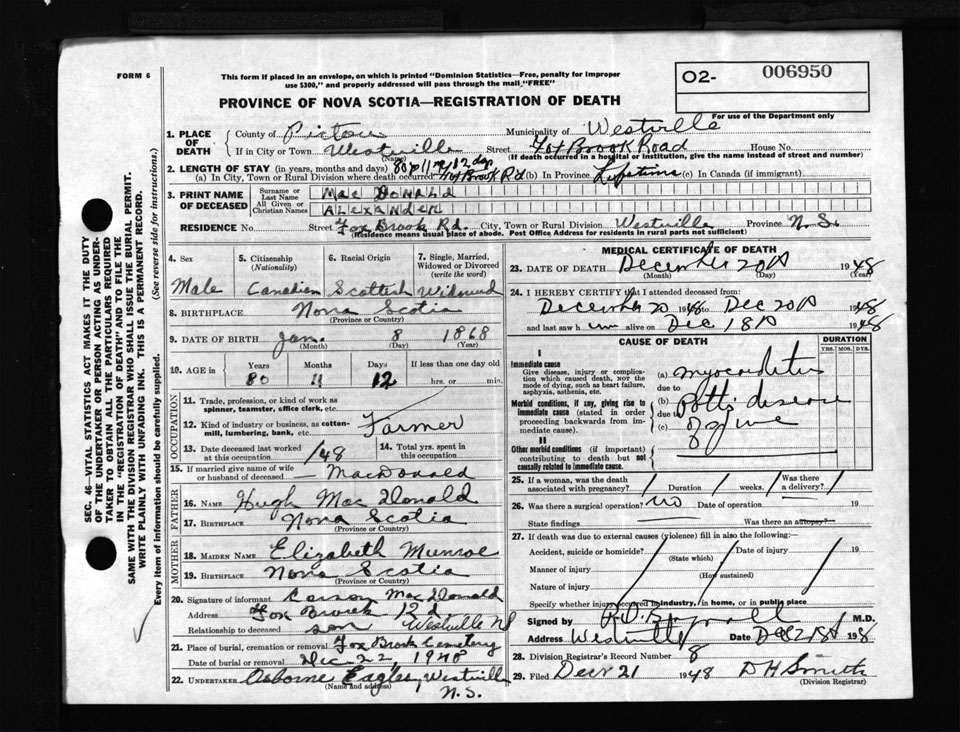 FORM 6
This form if placed in an envelope, on which is printed "Dominion Statistics—Free, penalty for improper
use $300," and properly addressed will pass through the mail "FREE"
O2- 006950
For use of the Department only
PROVINCE OF NOVA SCOTIA—REGISTRATION OF DEATH
1. PLACE OF DEATH County of Pictou Municipality of Westville
If in City or Town Westville Street Fox Brook Road House No.
(Name) (If death occurred in a hospital or institution, give the name instead of street and number)
2. LENGTH OF STAY (in years, months and days) 80 y 11 m 12 dys
(a) In City, Town or Rural Division where death occurred Fox Brook Rd (b) In Province Lifetime (c) In Canada (if immigrant)
3. PRINT NAME OF DECEASED Surname or Last Name MacDONALD
All Given or Christian Names ALEXANDER
RESIDENCE No. Street Fox Brook Rd. City, Town or Rural Division Westville Province N.S.
(Residence means usual place of abode. Post Office Address for residents in rural parts not sufficient)
4. Sex Male
5. Citizenship (Nationality) Canadian
6. Racial Origin Scottish
7. Single, Married, Widowed or Divorced (write the word) Widowed
8. BIRTHPLACE Nova Scotia
(Province or Country)
9. DATE OF BIRTH Jan. 8 1868
(Month) (Day) (Year)
10. AGE in Years 80 Months 11 Days 12 If less than one day hrs. or min.
OCCUPATION
11. Trade, profession, or kind of work as spinner, teamster, office clerk, etc.
12. Kind of industry or business, as cotton-mill, lumbering, bank, etc. Farmer
13. Date deceased last worked at this occupation /48
14. Total yrs. spent in this occupation
15. If married give name of wife or husband of deceased MacDonald
FATHER
16. NAME Hugh MacDonald
17. BIRTHPLACE Nova Scotia
(Province or Country)
MOTHER
18. MAIDEN NAME Elizabeth Munroe
19. BIRTHPLACE Nova Scotia
(Province or Country)
20. Signature of informant Carson MacDonald
Address Fox Brook Rd. Westville NS
Relationship to deceased son
21. Place of burial, cremation or removal Fox Brook Cemetery
Date of burial or removal Dec 22, 1948
22. UNDERTAKER Osborne Eagles, Westville N.S.
(Name and address)
MEDICAL CERTIFICATE OF DEATH
23. DATE OF DEATH December 20th 1948
(Month) (Day) (Year)
24. I HEREBY CERTIFY that I attended deceased from:
December 20 1948 to Dec 20th 1948
and last saw him alive on Dec 18th 1948
CAUSE OF DEATH
DURATION
YRS. MOS. DYS.
I
Immediate cause
Give disease, injury or complication which caused death, not the mode of dying, such as heart failure, asphyxia, asthenia, etc.
(a) Myocarditis
due to
Morbid conditions, if any, giving rise to immediate cause (stated in order proceeding backwards from immediate cause).
(b) Potts disease
due to
(c) of spine
II
Other morbid conditions (if important) contributing to death but not causally related to immediate cause.
25. If a woman, was the death associated with pregnancy? Duration weeks. Was there a delivery?
26. Was there a surgical operation? no Date of operation 19
State findings Was there an autopsy?
27. If death was due to external causes (violence) fill in also the following:—
Accident, suicide or homicide? Date of injury 19
(State which)
Manner of injury
(How sustained)
Nature of injury
Specify whether injury occurred in industry, in home, or in public place
Signed by M.D.
Address Westville Date Dec 21st 1948
28. Division Registrar's Record Number 8
29. Filed Decr 21 1948 D H Smith
(Division Registrar)
SEC. 46—VITAL STATISTICS ACT MAKES IT THE DUTY
OF THE UNDERTAKER OR PERSON ACTING AS UNDER-
TAKER TO OBTAIN ALL THE PARTICULARS REQUIRED
IN THE "REGISTRATION OF DEATH" AND TO FILE THE
SAME WITH THE DIVISION REGISTRAR WHO SHALL ISSUE THE BURIAL PERMIT.
WRITE PLAINLY WITH UNFADING INK. THIS IS A PERMANENT RECORD.
Every item of information should be carefully supplied. (See reverse side for instructions.)